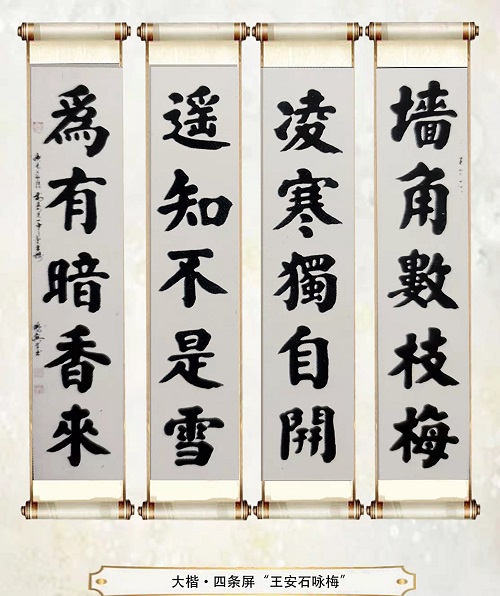 墙角數枝梅
凌寒獨自開
遥知不是雪
為有暗香來
大楷·四条屏“王安石咏梅”